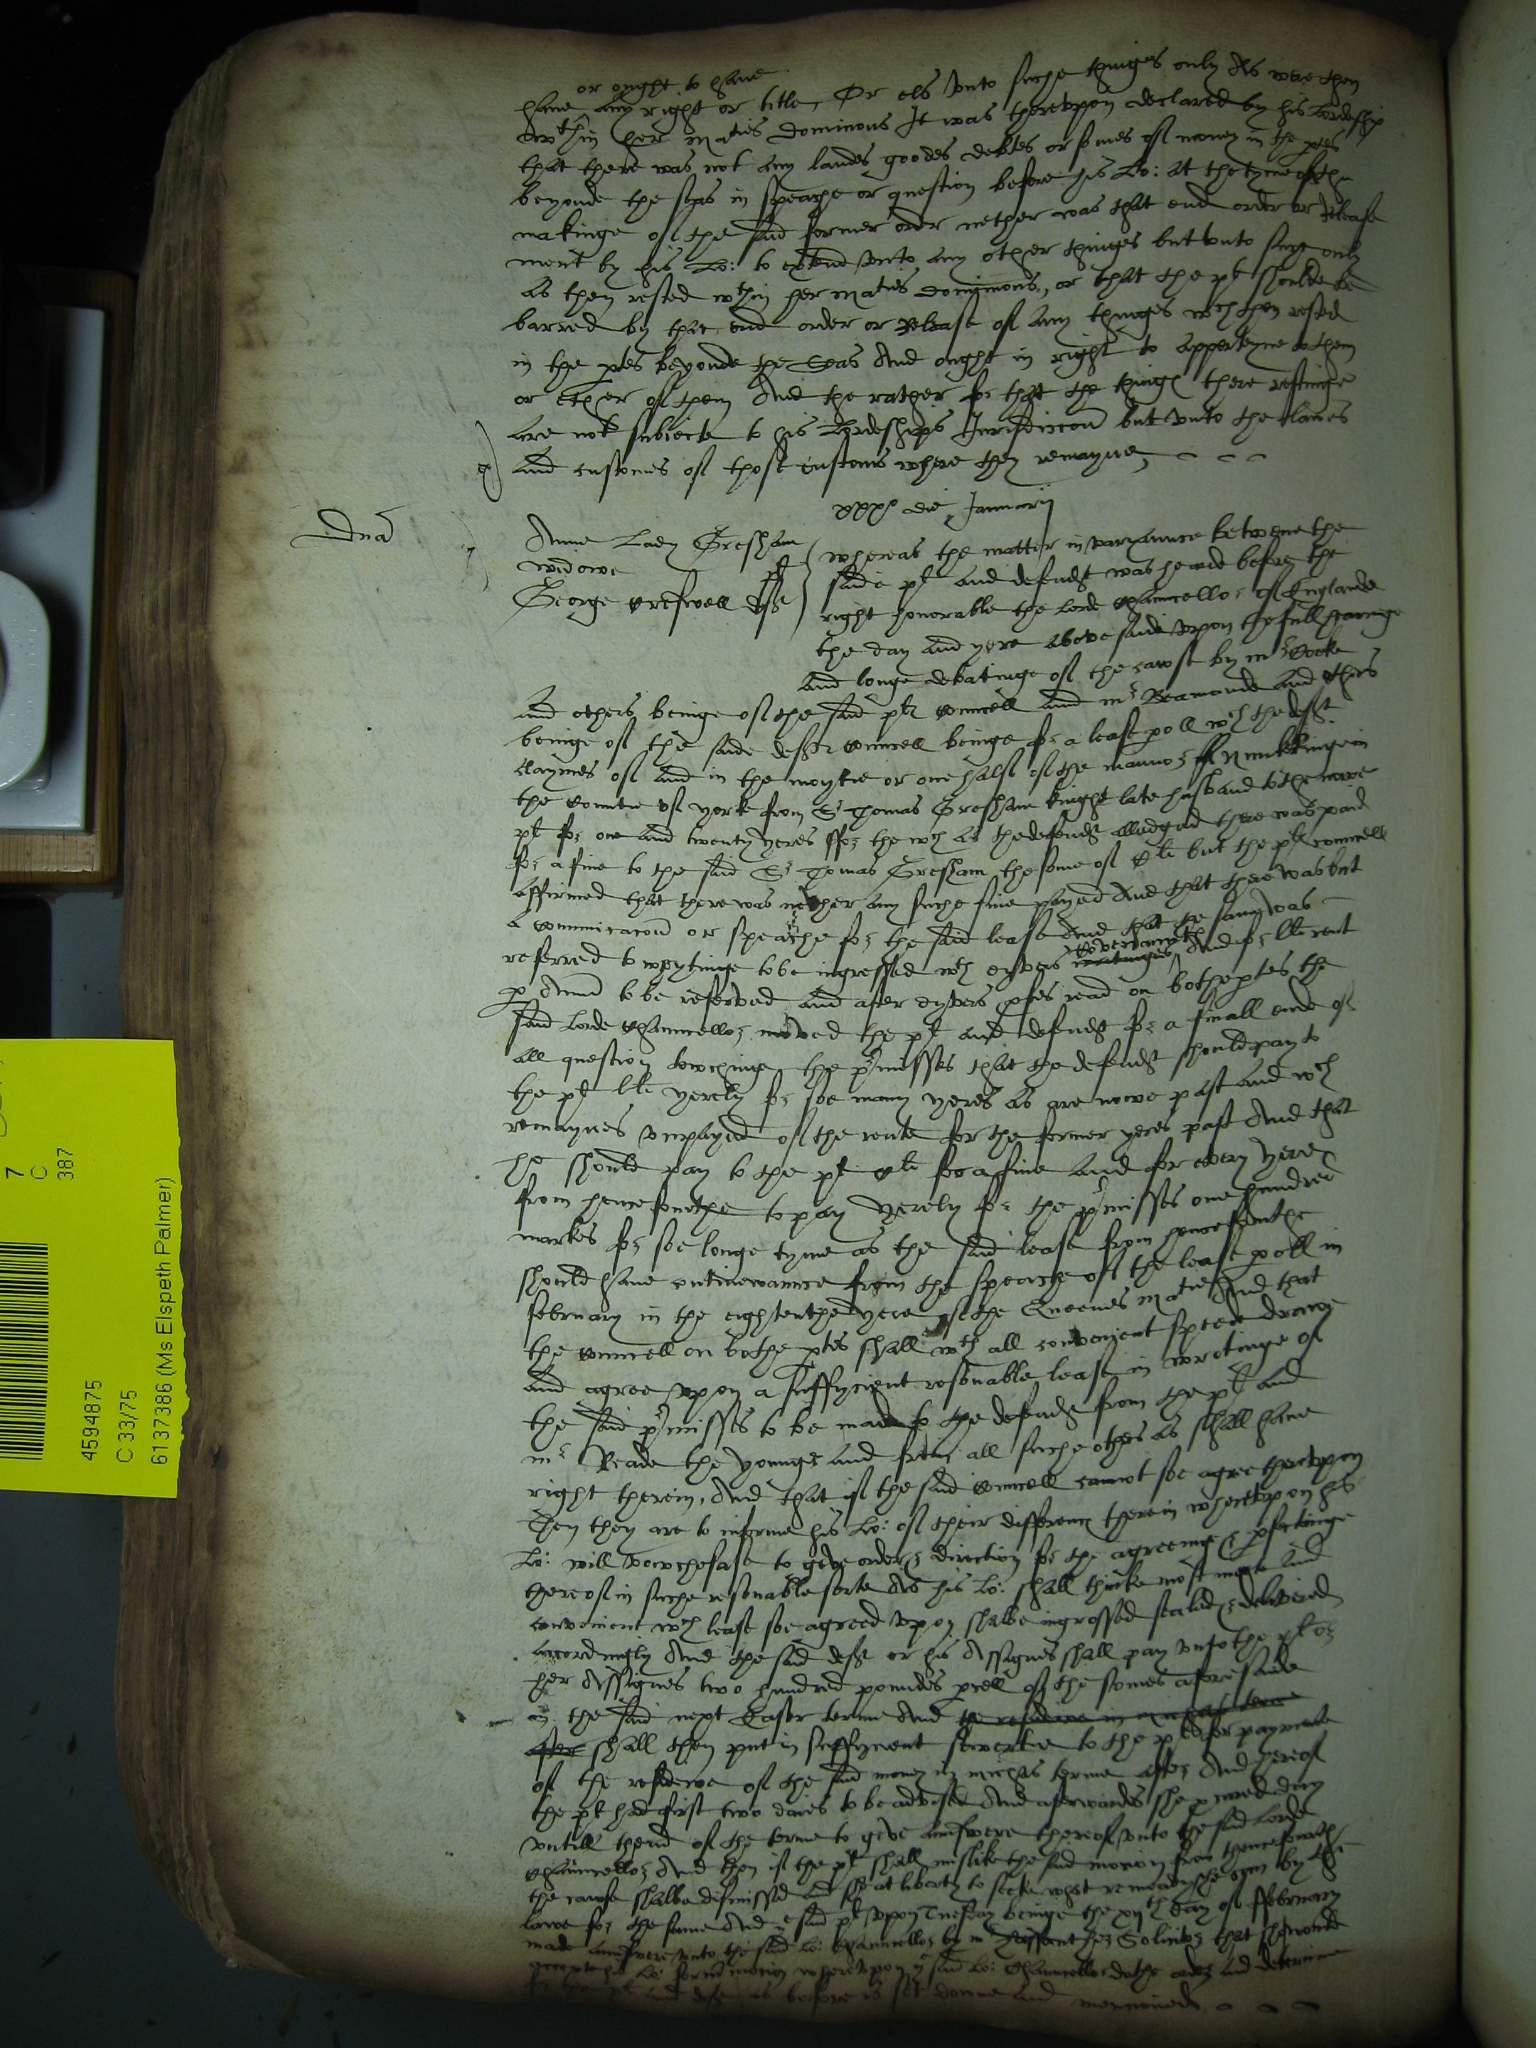 or ought to have
have any right or title, Or els unto suche thinges only As were then
wthin her Maties dominions It was thereupon declared by his Lordeshipp
that there was not any landes goodes debtes or somes of money in the ptes
beyonde the seas in speache or question before his Lo: at the tyme of the
makinge of the said former order nether was that end order or Release
ment by his Lo: to extend unto any other thinges but unto suche only
as then rested wthin her Maties dominions, or that the pl shoulde be
barred by that end order or Release of any thinges wch then rested
in the ptes beyonde the Seas And ought in right to apperteyne to them
or ether of them And the rather for that the thinges there restinge
are not subiecte to his Lordeships Jurisdiccon but unto the lawes
and customes of those customs where they remayne,
xxxo die Januarij
Anne Lady Gresham
widowe pl
George Creswell deft
whereas the matter in varyaunce betwene the
saide pl and defendt was heard before the
right honorable the Lord Chauncellor of Englande
the day and yere above saide upon the full hearinge
and longe debatinge of the cawse by mr Cooke
and others beinge of the said pl councell and mr Beamonde and others
beinge of the saide defts councell beinge for a lease poll wch the deft
claymes of and in the moytie or one half of the mannor of Nunkelinge in
the countie of york from Sr Thomas Gresham knight late husband to the nowe
pl for one and twenty yeres for the wch as the defendt alledged there was paid
for a fine to the said Sr Thomas Gresham the some of Cli but the pl councell
affirmed that there was nether any suche fine payed And that there was but
a communicacon or speache for the said lease And that the same was
referred to wrytinge to be ingrossed wth dyvers covenants And for lli rent
p Annu to be reserved and after dyvers ptes read on bothe ptes the
said Lorde Chauncellor moved the pl and defendt for a finall ende of
all question towchinge the pmisses that the defendt should pay to
the pl lli yerely for soe many yeres as are nowe past and wch
remaynes unpayed of the rente for the former yeres past And that
he should pay to the pl Cli for a ffine and for every yere
from hencefourthe to pay yerely for the pmisses one hundred
markes for soe longe tyme as the said lease from hencefourthe
should have continewaunce from the speache of the lease poll in
februarry in the eightenthe yere of the Queenes Matie And that
the councell on bothe ptes shall wth all convenient speede drawe
and agree upon a suffycient resonable lease in wrytinge of
the said pmisses to be made to the defendt from the pl and
mr Reade the younger and from all suche others as shall have
right therein, And that if the said councell cannot soe agree thereupon
Then they are to informe his Lo: of their difference therein whereupon his
Lo: will vouchesafe to give order & direction for the agreeinge & pfectinge
thereof in suche resonable sorte As his Lo: shall thinke most meete and
convenient wch lease soe agreed upon shalbe ingrossed sealed & delivered
accordingly And the said deft or his Assignes shall pay unto the pl or
her Assignes two hundred poundes pcell of the somes aforesaide
in the said next Easter terme And the residewe in
after shall then put in suffycient sewertie to the pl for paymente
of the residewe of the said money in michas terme after And hereof
the pl had first two daies to be advised And afterwardes she
untill thend of the terme to give aunswere thereof unto the said Lorde
Chauncellor And then if the pl shall mislike the said mocion from thencefourth
the cawse shalbe dismissed and she at liberty to seeke what remedy she can by the
lawe for the same And ye said pl upon Tuesday beinge the xijth day of ffebruary
made aunswere unto the said Lo: Chauncellor by mr her Solicitor that she would
accepte his Lo: former mocion whereupon ye said Lo: Chauncellor dothe order and determine
the pl and deft as before is set downe and mencioned.
7
C
387
4594875
C 33/75
6137386 (Ms Elspeth Palmer)